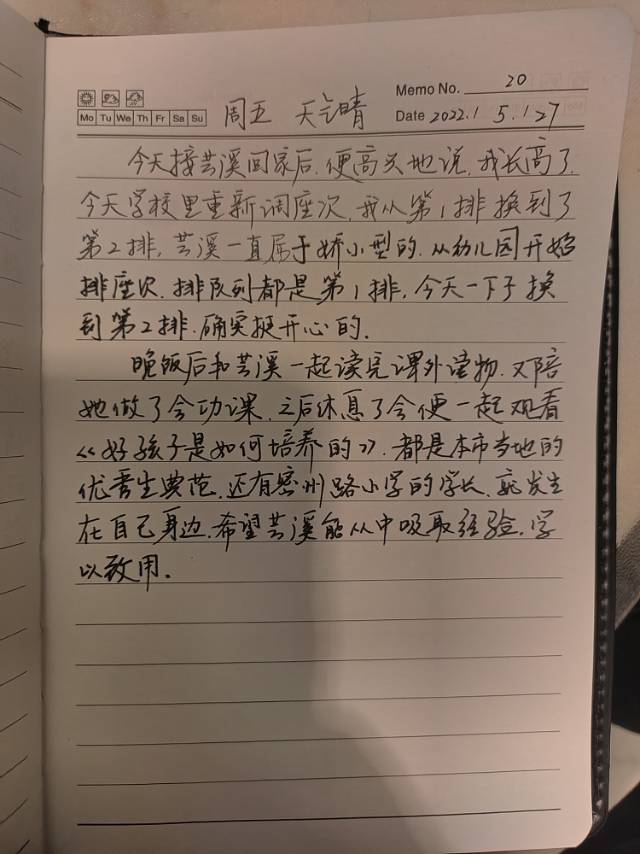 Memo No. 20
Mo Tu We Th Fr Sa Su 周五 天气晴 Date 2022.1 5.127
今天接芸溪回家后,便高兴地说,我长高了.
今天学校里重新调座次,我从第1排换到了
第2排,芸溪一直属于娇小型的.从幼儿园开始
排座次.排队列都是第1排,今天一下子换
到第2排.确实挺开心的.
晚饭后和芸溪一起读完课外读物.又陪
她做了会功课.之后休息了会便一起观看
《好孩子是如何培养的》.都是本市当地的
优秀生典范.还有密州路小学的学长.就发生
在自己身边.希望芸溪能从中吸取经验.学
以致用.